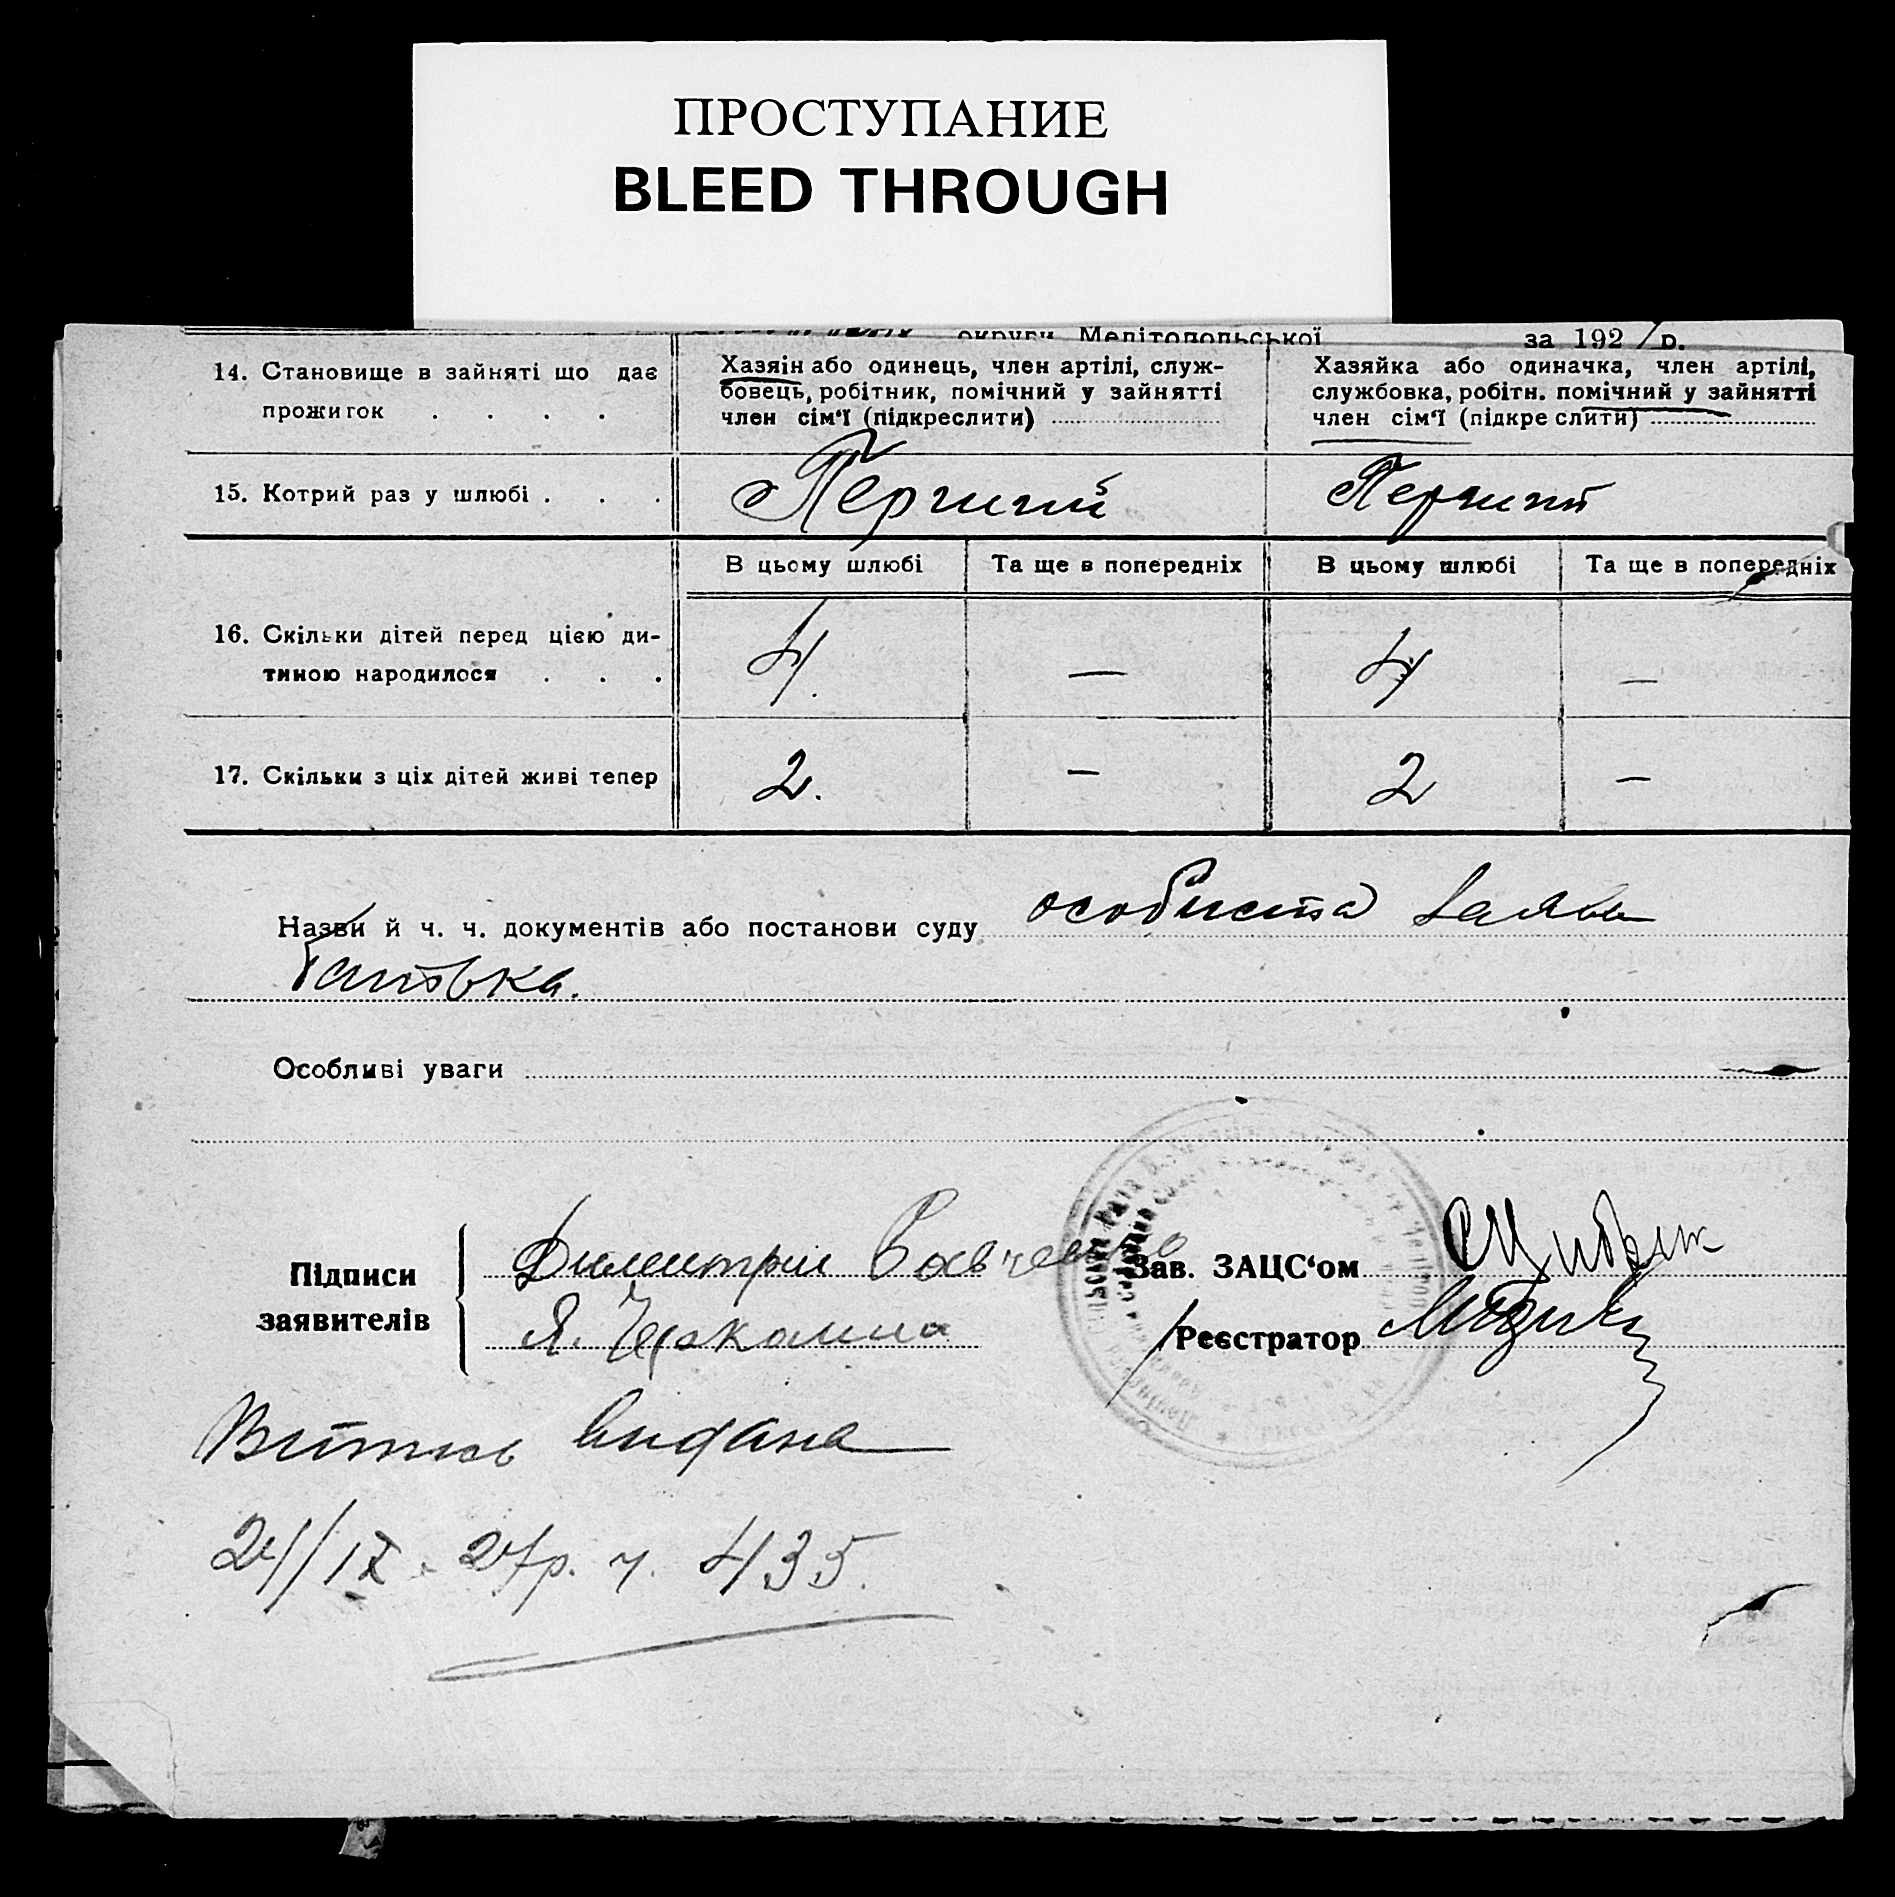 ПРОСТУПАНИЕ
BLEED THROUGH
округи Мелітопольської за 192 р.
14. Становище в зайняті що дає прожиток . . . .
Хазяін або одинець, член артілі, служ-
бовець, робітник, помічний у зайнятті
член сім'ї (підкреслити)
Хазяйка або одиначка, член артілі,
службовка, робітн. помічний у зайнятті
член сім'ї (підкре слити)
15. Котрий раз у шлюбі . . .
В цьому шлюбі Та ще в попередніх В цьому шлюбі Та ще в попередніх
16. Скільки дітей перед цією ди-
тиною народилося . . . 4. — 4 —
17. Скільки з ціх дітей живі тепер 2. — 2 —
Назви й ч. ч. документів або постанови суду особиста заява
батька.
Особливі уваги
Підписи
заявителів
Димитрий
Я.
Зав. ЗАЦС‘ом
Реєстратор
Витяг видана
24/IX 27р. ч. 435.